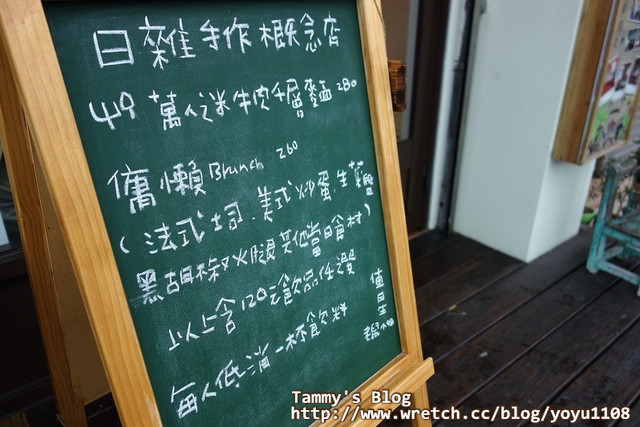 日雜手作概念店
49萬人迷牛肉千層麵 280
慵懶 Brunch 260
(法式土司.美式炒蛋.生菜
黑胡椒火腿 其他當日食材)
以上含120元飲品任選
值日生
每人低消一杯飲料
Tammy's Blog
http://www.wretch.cc/blog/yoyu1108